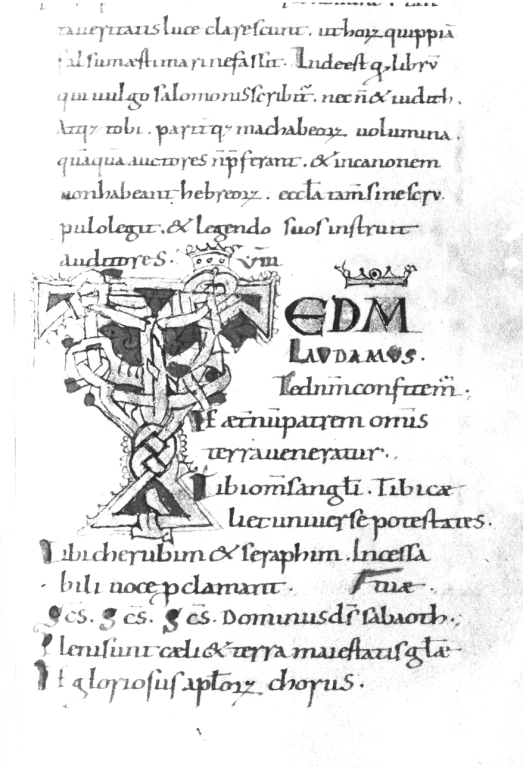 ta ueritatis luce clarescunt. ut horꝝ quippiā
falsum æstimari nefas sit. Inde est ꝙ librū
qui uulgo salomonis scribit̄. nec n̄ & iudith.
Atq; tobi. parit̄ q; machabeorꝝ uolumina.
quāquā auctores n̄ p̄ferant. & in canonem
non habeant hebreorꝝ. eccl̄a tam̄ sine scru
pulo legit. & legendo suos instruit
auditores. VIII
TE DM̄
LAUDAMUS.
Te dnm̄ confitem̄.
Te æt̄nū patrem omīs
terra ueneratur.
Tibi om̄s angl̄i. Tibi cæ
li et uniuerse potestates.
Tibi cherubim & seraphim. Incessa
bili uoce p̄clamant. tuæ.
s̄cs. s̄cs. s̄cs. Dominus d̄s sabaoth.
Pleni sunt cæli & terra maiestatis gl̄æ
Te gloriosus apl̄orꝝ chorus.